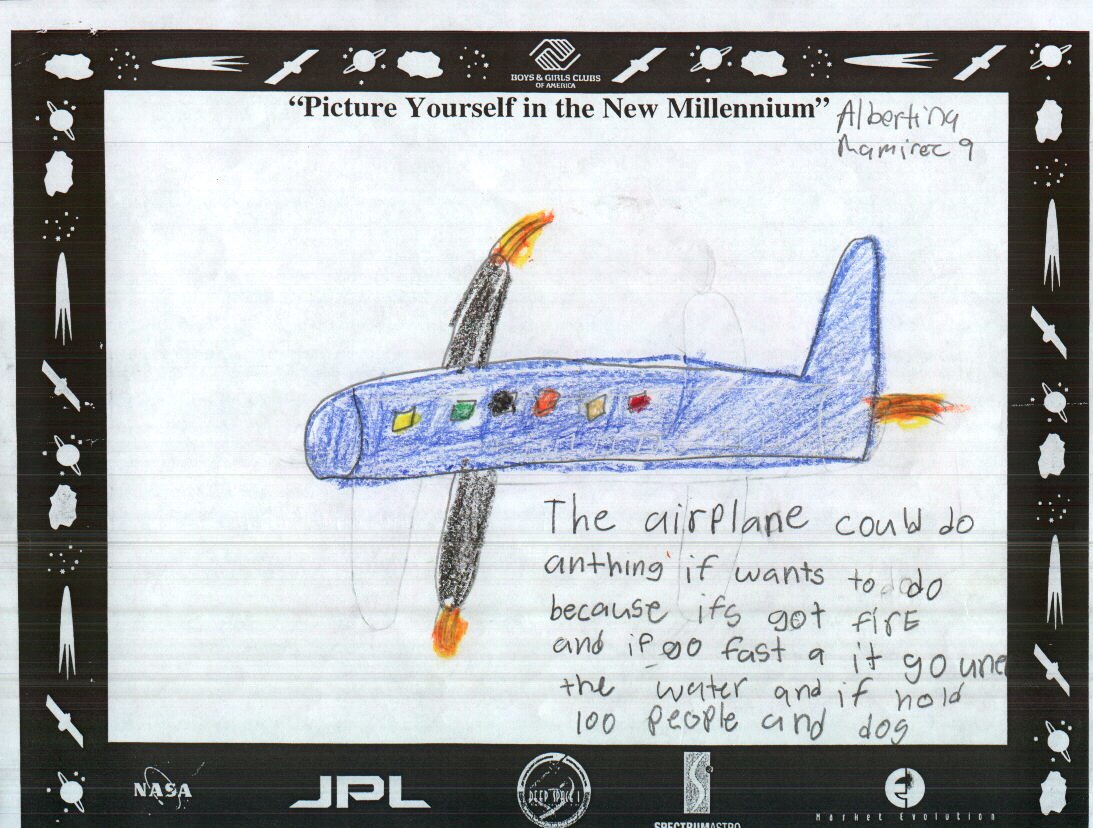 BOYS & GIRLS CLUBS
OF AMERICA
“Picture Yourself in the New Millennium”
Albertina
Ramirec 9
The airplane could do
anthing if wants to do do
because ifs got firE
and if go fast a it go une
the water and if hold
100 people and dog
NASA
JPL
DEEP SPACE 1
SPECTRUMASTRO
Market Evolution